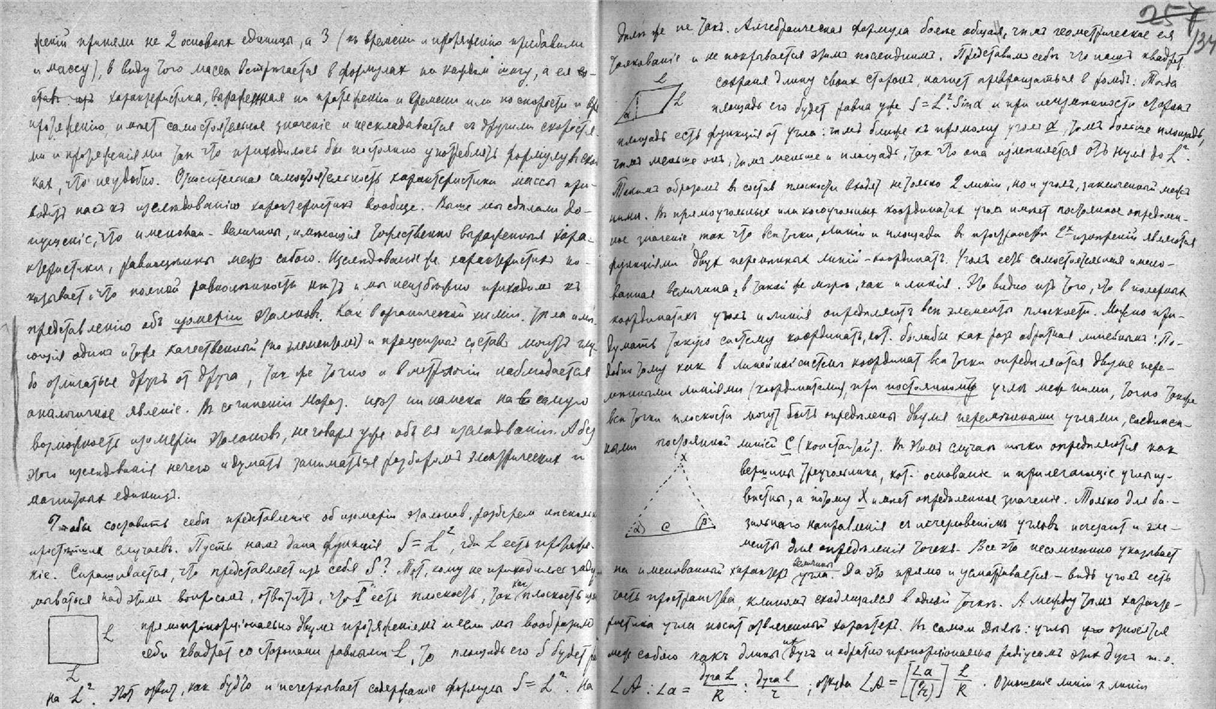 жений приняли не 2 основных единицы, а 3 (к времени и протяжению прибавили
и массу), в виду того масса встречается в формулах на каждом шагу, а ея
характеристика, выраженная по протяжению и времени или по скорости и
протяжению, имеет самостоятельное значение и нескладывается с другими скоростя-
ми и протяжениями так что приходилось бы постоянно употреблять формулу в
как, что неудобно. Относительная самостоятельность характеристики массы при-
водит нас к изследованию характеристик вообще. Выше мы сделали до-
пущение, что именован. величины, имеющия тожественно выраженныя хара-
ктеристики, равноценны между собою. Изследование же характеристик по-
казывает, что полной равноценности нет и мы неизбежно приходим к
представлению об изомерии эталонов. Как в органической химии тела име-
ющия один и тоже качественный (по элементам) и процентный состав могут
отличаться друг от друга, так же точно и в метрологии наблюдается
аналогичное явление. В сочинении Мороз. нет ни намека на самую
возможность изомерии эталонов, не говоря уже об ея изследовании. А без
этого изследования нечего и думать заниматься разбором электрических и
магнитных единиц.
Чтобы составить себе представление об изомерии эталонов, разберем несколько
простейших случаев. Пусть нам дана функция S = L², где L есть протяже-
ние. Спрашивается, что представляет из себя S? Тот, кому не приходилось заду-
мываться над этим вопросом, ответит, что S есть плоскость, так как плоскость
прямопропорциональна двум протяжениям и если мы вообразим
L
себе квадрат со сторонами равными L, то площадь его S будет
L
на L². Этот ответ, как будто и исчерпывает содержание формулы S = L². На
257
134
деле же не так. Алгебраическая формула более общая, чем геометрическое ея
толкование и не покрывается этим последним. Представим себе что наш квадрат,
L
L
сохраняя длину своих сторон, начнет превращаться в ромб. Тогда
α
площадь его будет равна уже S = L². Sin α и при неизменности сторон
площадь есть функция от угла: чем ближе к прямому угол α, тем больше площадь,
чем меньше он, тем меньше и площадь, так что она изменяется от нуля до L².
Таким образом в состав плоскости входят не только 2 линии, но и угол, заключенный между
ними. В прямоугольных или косоугольных координатах угол имеет постоянное определен-
ное значение, так что все точки, линии и площади в пространстве 2х измерений являются
функциями двух переменных линий-координат. Угол есть самостоятельная имено-
ванная величина, в такой же мере, как и линия. Это видно из того, что в полярных
координатах угол и линия определяют все элементы плоскости. Можно при-
думать такую систему координат, кот. была бы как раз обратная линейным: По-
добно тому как в линейной системе координат все точки определяются двумя пере-
менными линиями (координатами) при постоянном угле между ними, точно также
все точки плоскости могут быть определены двумя переменными углами, соединен-
ными постоянной линией C (константой). В этом случае точки определяются как
X
вершины треугольника, кот. основание и прилегающие углы из-
вестны, а потому X имеет определенное значение. Только для ба-
α C β
зального направления с исчезновением углов исчезают и эле-
менты для определения точек. Все это несомненно указывает
на именованный характер величины угла. Да это прямо и усматривается - ведь угол есть
часть пространства, клином сходящаяся в одной точке. А между тем характе-
ристика угла носит отвлеченный характер. В самом деле: углы относятся
между собою как длины их дуг и обратно пропорционально радиусам этих дуг т.е.
∠A : ∠a = дуга L / R : дуга l / r ; откуда ∠A = [∠a / (l/r)] L / R . Отношение линии к линии